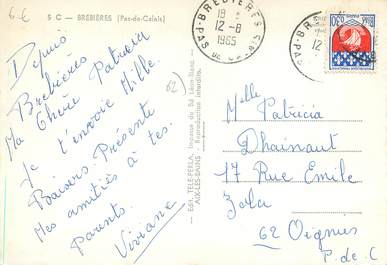 6 €
5 C — BREBIÈRES (Pas-de-Calais)
Depuis
Brebières
Ma Chère Patricia
je t'envoie Mille
Baisers. Présente
Mes amitiés à tes
Parents.
Viviane
62)
Edit. TELE-PERLA, Impasse du Bd Léon-Blanc
AIX-LES-BAINS - Reproduction interdite.
BREBIÈRES
19 H
12-8
1965
PAS-DE-CALAIS
BREBIÈRES
12
PAS-DE
0,30
Melle Patricia
Dhainaut
17 Rue Emile
Zola
62 Oignies
P. de C.